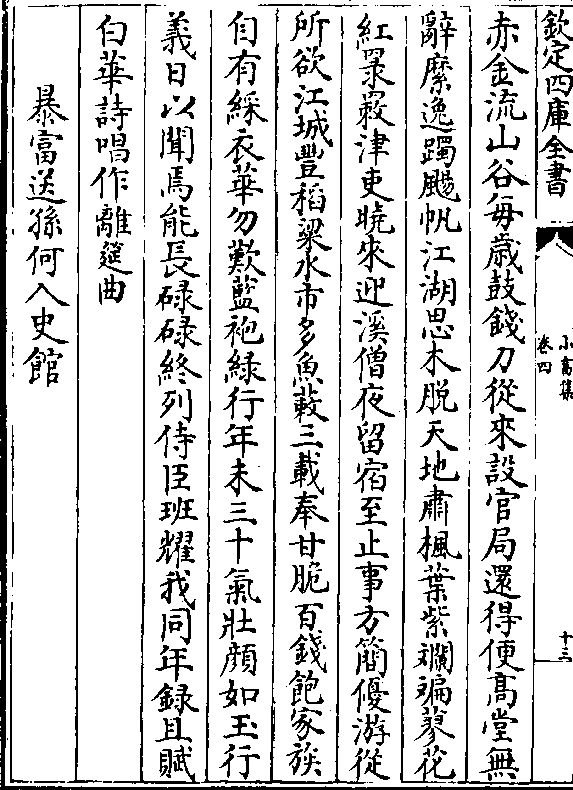 欽定四庫全書
小畜集
卷四
十三
赤金流山谷每歳鼓錢刀從來設官局還得便髙堂無
辭縻逸躅颺帆江湖思木脱天地肅楓葉紫斕斒蓼花
紅㒇𦌉津吏曉來迎溪僧夜留宿至止事方簡優游從
所欲江城豐稻粱水市多魚蔌三載奉甘脆百錢飽家族
自有綵衣華勿歎藍袍緑行年未三十氣壯顔如玉行
義日以聞焉能長碌碌終列侍臣班耀我同年録且賦
白華詩唱作離筵曲
暴富送孫何入史館